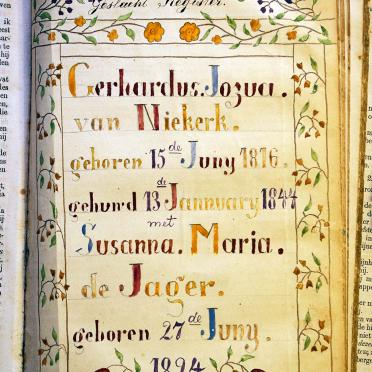 Geslacht Register.
Gerhardus. Jozua.
van Niekerk.
geboren 15de Juny 1816.
gehuwd 13de Jannuary 1844
met
Susanna. Maria.
de Jager.
geboren 27de Juny.
1824